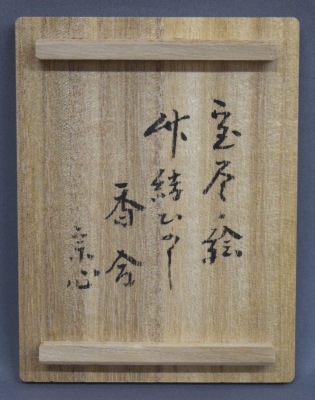 宝尽し絵
竹結ひのし
香合
宗心